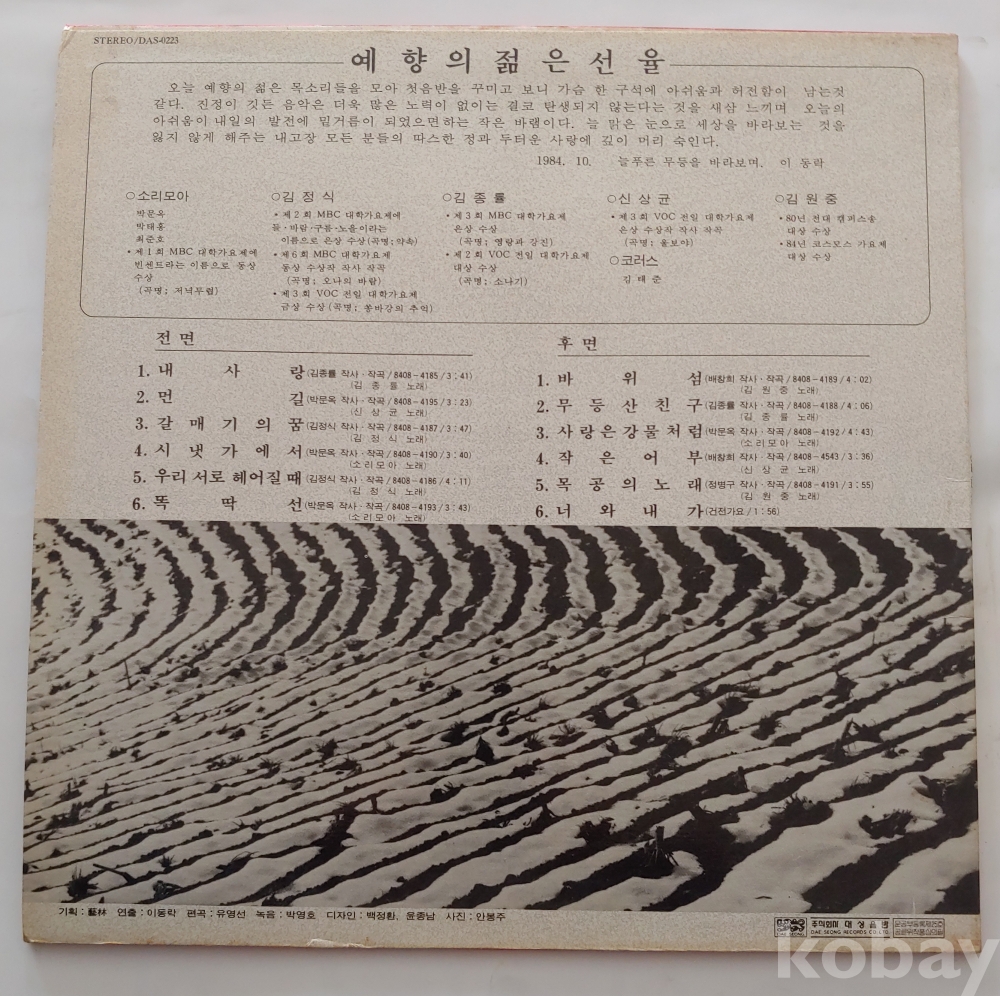 STEREO/DAS-0223
예향의 젊은 선율
오늘 예향의 젊은 목소리들을 모아 첫음반을 꾸미고 보니 가슴 한 구석에 아쉬움과 허전함이 남는것
같다. 진정이 깃든 음악은 더욱 많은 노력이 없이는 결코 탄생되지 않는다는 것을 새삼 느끼며 오늘의
아쉬움이 내일의 발전에 밑거름이 되었으면하는 작은 바램이다. 늘 맑은 눈으로 세상을 바라보는 것을
잃지 않게 해주는 내고장 모든 분들의 따스한 정과 두터운 사랑에 깊이 머리 숙인다.
1984. 10. 늘푸른 무등을 바라보며. 이 동락
○소리모아
박문옥
박태홍
최준호
• 제 1 회 MBC 대학가요제에
빈센트라는 이름으로 동상
수상
(곡명; 저녁무렵)
○김 정 식
• 제 2 회 MBC 대학가요제에
들·바람·구름·노을이라는
이름으로 은상 수상(곡명;약속)
• 제 6 회 MBC 대학가요제
동상 수상작 작사 작곡
(곡명; 오나의 바람)
• 제 3 회 VOC 전일 대학가요제
금상 수상(곡명; 쫑바강의 추억)
○김 종 률
• 제 3 회 MBC 대학가요제
은상 수상
(곡명; 영랑과 강진)
• 제 2 회 VOC 전일 대학가요제
대상 수상
(곡명; 소나기)
○신 상 균
• 제 3 회 VOC 전일 대학가요제
은상 수상작 작사 작곡
(곡명; 울보야)
○코러스
김 태 준
○김 원 중
• 80년 전대 캠퍼스송
대상 수상
• 84년 코스모스 가요제
대상 수상
전 면
1. 내 사 랑 (김종률 작사·작곡/8408-4185/3:41)
(김 종 률 노래)
2. 먼 길 (박문옥 작사·작곡/8408-4195/3:23)
(신 상 균 노래)
3. 갈 매 기 의 꿈 (김정식 작사·작곡/8408-4187/3:47)
(김 정 식 노래)
4. 시 냇 가 에 서 (박문옥 작사·작곡/8408-4190/3:40)
(소리모아 노래)
5. 우리 서로 헤어질 때 (김정식 작사·작곡/8408-4186/4:11)
(김 정 식 노래)
6. 똑 딱 선 (박문옥 작사·작곡/8408-4193/3:43)
(소리모아 노래)
후 면
1. 바 위 섬 (배창희 작사·작곡/8408-4189/4:02)
(김 원 중 노래)
2. 무 등 산 친 구 (김종률 작사·작곡/8408-4188/4:06)
(김 종 률 노래)
3. 사랑은 강물처럼 (박문옥 작사·작곡/8408-4192/4:43)
(소리모아 노래)
4. 작 은 어 부 (배창희 작사·작곡/8408-4543/3:36)
(신 상 균 노래)
5. 목 공 의 노 래 (정병구 작사·작곡/8408-4191/3:55)
(김 원 중 노래)
6. 너 와 내 가 (건전가요/1:56)
기획:藝林 연출:이동락 편곡:유영선 녹음:박영호 디자인:백정환, 윤종남 사진:안봉주
DAE SEONG
주식회사 대 성 음 반
DAE SEONG RECORDS CO. LTD.
kobay